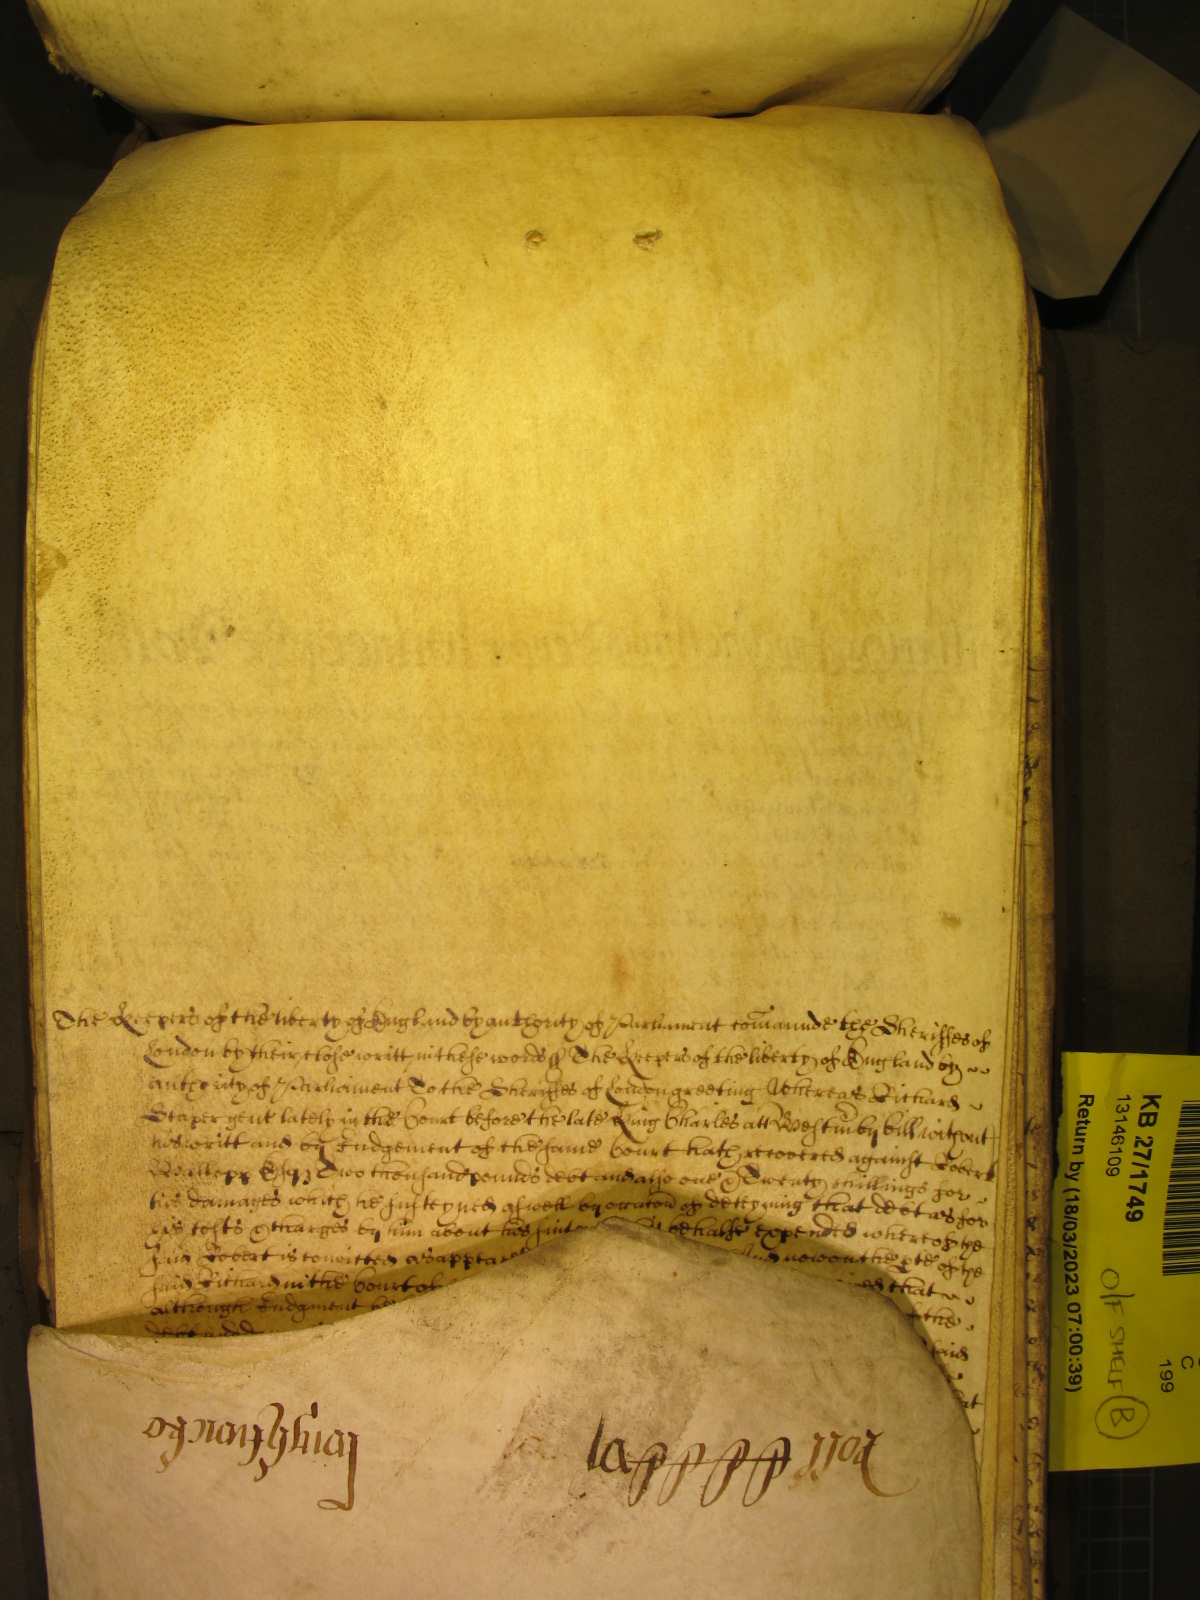 The Keepers of the liberty of England by authority of Parliament comaunde the Sheriffes of
London by their close writt in these words ss The Keepers of the liberty of England by
authority of Parliament To the Sheriffes of London greeting Whereas Richard
Staper gent lately in the Court before the late King Charles att Westm by bill without
his writt and by Judgement of the same Court hath recovered against Robert
Esqr Two thousand pounds debt and also one & Twenty shillings for
his damages which he susteyned aswell by occacon of deteyning that debt as for
his costs & charges by him about his suite behalfe expended whereof the
said Robert is convicted as appeares And now on the pte of the
said Richard in the Court of that
although Judgment be of the
debt said
at
Roll
KB 27/1749
13146109
Return by (18/03/2023 07:00:39)
C
199
O/F SHELF B